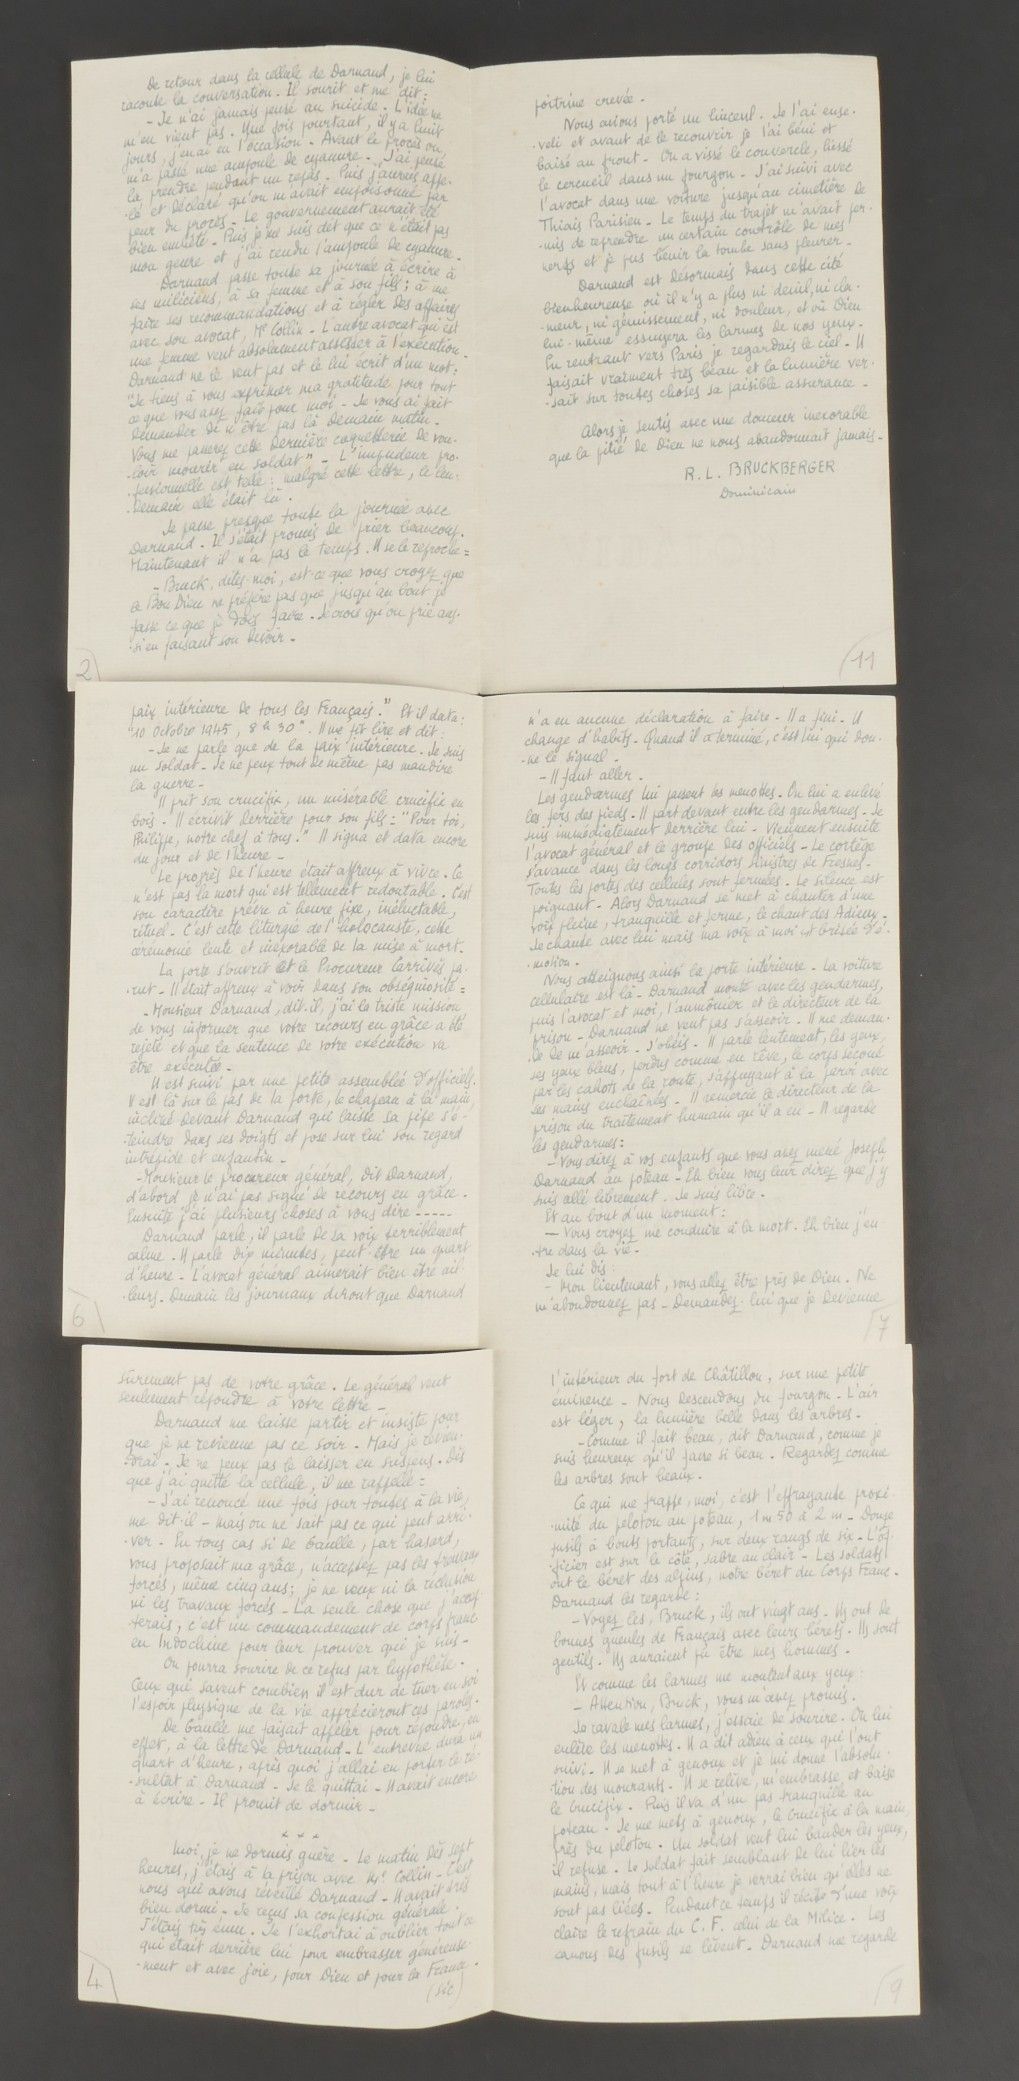 De retour dans la cellule de Darnaud, je lui
raconte la conversation. Il sourit et me dit :
- Je n'ai jamais pensé au suicide. L'idée ne
m'en vient pas. Une fois pourtant, il y a huit
jours, j'en ai eu l'occasion. Avant le procès on
m'a passé une ampoule de cyanure. J'ai pensé
la prendre pendant un repas. Puis j'aurais appe-
-lé et déclaré qu'on m'avait empoisonné par
peur du procès. Le gouvernement aurait été
bien embêté. Puis je me suis dit que ce n'était pas
mon genre et j'ai rendu l'ampoule de cyanure.
Darnaud passe toute sa journée à écrire à
ses miliciens, à sa femme et à son fils ; à me
faire ses recommandations et à régler des affaires
avec son avocat, Me Collin. L'autre avocat qui est
une femme veut absolument assister à l'exécution.
Darnaud ne le veut pas et le lui écrit d'un mot :
"Je tiens à vous exprimer ma gratitude pour tout
ce que vous avez fait pour moi - Je vous ai fait
demander de n'être pas là demain matin.
Vous me passerez cette dernière coquetterie de vou-
-loir mourir en soldat" - L'impudeur pro-
-fessionnelle est telle : malgré cette lettre, le len-
-demain elle était là.
Je passe presque toute la journée avec
Darnaud. Il s'était promis de prier beaucoup.
Maintenant il n'a pas le temps. Il se le reproche =
- Bruck, dites-moi, est-ce que vous croyez que
le Bon Dieu ne préfère pas que jusqu'au bout je
fasse ce que je dois faire. Je crois qu'on prie aus-
-si en faisant son devoir -
2
poitrine crevée -
Nous avions porté un linceul. Je l'ai ense-
-veli et avant de le recouvrir je l'ai béni et
baisé au front - On a vissé le couvercle, hissé
le cercueil dans un fourgon - J'ai suivi avec
l'avocat dans une voiture jusqu'au cimetière de
Thiais Parisien - Le temps du trajet m'avait per-
-mis de reprendre un certain contrôle de mes
nerfs et je pus bénir la tombe sans pleurer -
Darnaud est désormais dans cette cité
bienheureuse où il n'y a plus ni deuil, ni cla-
-meur, ni gémissement, ni douleur, et où Dieu
lui-même essuyera les larmes de nos yeux -
En rentrant vers Paris je regardais le ciel - Il
faisait vraiment très beau et la lumière ver-
-sait sur toutes choses sa paisible assurance -
Alors je sentis avec une douceur inexorable
que la pitié de Dieu ne nous abandonnait jamais -
R. L. BRUCKBERGER
Dominicain
11
paix intérieure de tous les Français." Et il data :
"10 Octobre 1945, 8 h 30". Il me fit lire et dit :
- Je ne parle que de la paix intérieure. Je suis
un soldat. Je ne peux tout de même pas maudire
la guerre -
Il prit son crucifix, un misérable crucifix en
bois. Il écrivit derrière pour son fils = "Pour toi,
Philippe, notre chef à tous." Il signa et data encore
du jour et de l'heure -
Le progrès de l'heure était affreux à vivre. Ce
n'est pas la mort qui est tellement redoutable. C'est
son caractère prévu à heure fixe, inéluctable,
rituel. C'est cette liturgie de l'holocauste, cette
cérémonie lente et inexorable de la mise à mort.
La porte s'ouvrit et le Procureur Lerrivés pa-
-rut - Il était affreux à voir dans son obséquiosité =
- Monsieur Darnaud, dit-il, j'ai la triste mission
de vous informer que votre recours en grâce a été
rejeté et que la sentence de votre exécution va
être exécutée -
Il est suivi par une petite assemblée d'officiels.
Il est là sur le pas de la porte, le chapeau à la main,
incliné devant Darnaud qui laisse sa pipe s'é-
-teindre dans ses doigts et pose sur lui son regard
intrépide et enfantin -
- Monsieur le procureur général, dit Darnaud,
d'abord je n'ai pas signé de recours en grâce.
Ensuite j'ai plusieurs choses à vous dire -----
Darnaud parle, il parle de sa voix terriblement
calme. Il parle dix minutes, peut-être un quart
d'heure - L'avocat général aimerait bien être ail-
-leurs. Demain les journaux diront que Darnaud
6
n'a eu aucune déclaration à faire - Il a fini. Il
change d'habits. Quand il a terminé, c'est lui qui don-
-ne le signal -
- Il faut aller.
Les gendarmes lui passent les menottes. On lui a enlevé
les fers des pieds. Il part devant entre les gendarmes. Je
suis immédiatement derrière lui - Viennent ensuite
l'avocat général et le groupe des officiels - Le cortège
s'avance dans les longs corridors sinistres de Fresnes.
Toutes les portes des cellules sont fermées. Le silence est
poignant - Alors Darnaud se met à chanter d'une
voix pleine, tranquille et ferme, le chant des Adieux.
Je chante avec lui mais ma voix à moi est brisée d'é-
-motion.
Nous atteignons ainsi la porte intérieure - La voiture
cellulaire est là - Darnaud monte avec les gendarmes,
puis l'avocat et moi, l'aumônier et le directeur de la
prison - Darnaud ne veut pas s'asseoir - Il me deman-
-de de m'asseoir - J'obéis - Il parle lentement, les yeux,
ses yeux bleus, perdus comme en rêve, le corps secoué
par les cahots de la route, s'appuyant à la paroi avec
ses mains enchaînées - Il remercie le directeur de la
prison du traitement humain qu'il a eu - Il regarde
les gendarmes :
- Vous direz à vos enfants que vous avez mené Joseph
Darnaud au poteau - Eh bien vous leur direz que j'y
suis allé librement. Je suis libre -
Et au bout d'un moment :
- Vous croyez me conduire à la mort. Eh bien j'en-
-tre dans la vie -
Je lui dis :
- Mon lieutenant, vous allez être près de Dieu. Ne
m'abandonnez pas - Demandez-lui que je devienne
7
sûrement pas de votre grâce. Le général veut
seulement répondre à votre lettre -
Darnaud me laisse partir et insiste pour
que je ne revienne pas ce soir - Mais je revien-
-drai - Je ne peux pas le laisser en suspens. Dès
que j'ai quitté la cellule, il me rappelle =
- J'ai renoncé une fois pour toutes à la vie,
me dit-il - mais on ne sait pas ce qui peut arri-
-ver - En tous cas si De Gaulle, par hasard,
vous proposait ma grâce, n'acceptez pas les travaux
forcés, même cinq ans ; je ne veux ni la reclusion
ni les travaux forcés - La seule chose que j'accep-
terais, c'est un commandement de corps franc
en Indochine pour leur prouver qui je suis -
On pourra sourire de ce refus par hypothèse.
Ceux qui savent combien il est dur de tuer en soi
l'espoir physique de la vie apprécieront ces paroles.
De Gaulle me faisait appeler pour répondre, en
effet, à la lettre de Darnaud - L'entrevue dura un
quart d'heure, après quoi j'allai en porter le ré-
-sultat à Darnaud - Je le quittai - Il avait encore
à écrire - Il promit de dormir -
* * *
Moi, je ne dormis guère - Le matin dès sept
heures, j'étais à la prison avec Me Collin - C'est
nous qui avons réveillé Darnaud - Il avait très
bien dormi - Je reçus sa confession générale -
J'étais très ému. Je l'exhortai à oublier tout ce
qui était derrière lui pour embrasser généreuse-
-ment et avec joie, pour Dieu et pour la France.
(sic)
4
l'intérieur du fort de Châtillon, sur une petite
éminence - Nous descendons du fourgon - L'air
est léger, la lumière belle dans les arbres -
- Comme il fait beau, dit Darnaud, comme je
suis heureux qu'il fasse si beau. Regardez comme
les arbres sont beaux.
Ce qui me frappe, moi, c'est l'effrayante proxi-
-mité du peloton au poteau, 1 m 50 à 2 m - Douze
fusils à bouts portants, sur deux rangs de six - L'of-
-ficier est sur le côté, sabre au clair - Les soldats
ont le béret des alpins, notre béret du Corps Franc.
Darnaud les regarde :
- Voyez les, Bruck, ils ont vingt ans - Ils ont de
bonnes gueules de Français avec leurs bérets. Ils sont
gentils. Ils auraient pu être mes hommes -
Et comme les larmes me montent aux yeux :
- Attention, Bruck, vous m'avez promis.
Je ravale mes larmes, j'essaie de sourire. On lui
enlève les menottes. Il a dit adieu à ceux qui l'ont
suivi - Il se met à genoux et je lui donne l'absolu-
-tion des mourants - Il se relève, m'embrasse et baise
le crucifix. Puis il va d'un pas tranquille au
poteau - Je me mets à genoux, le crucifix à la main,
près du peloton - Un soldat veut lui bander les yeux,
il refuse - Le soldat fait semblant de lui lier les
mains, mais tout à l'heure je verrai bien qu'elles ne
sont pas liées - Pendant ce temps il récite d'une voix
claire le refrain du C. F. celui de la Milice. Les
canons des fusils se lèvent - Darnaud me regarde
9